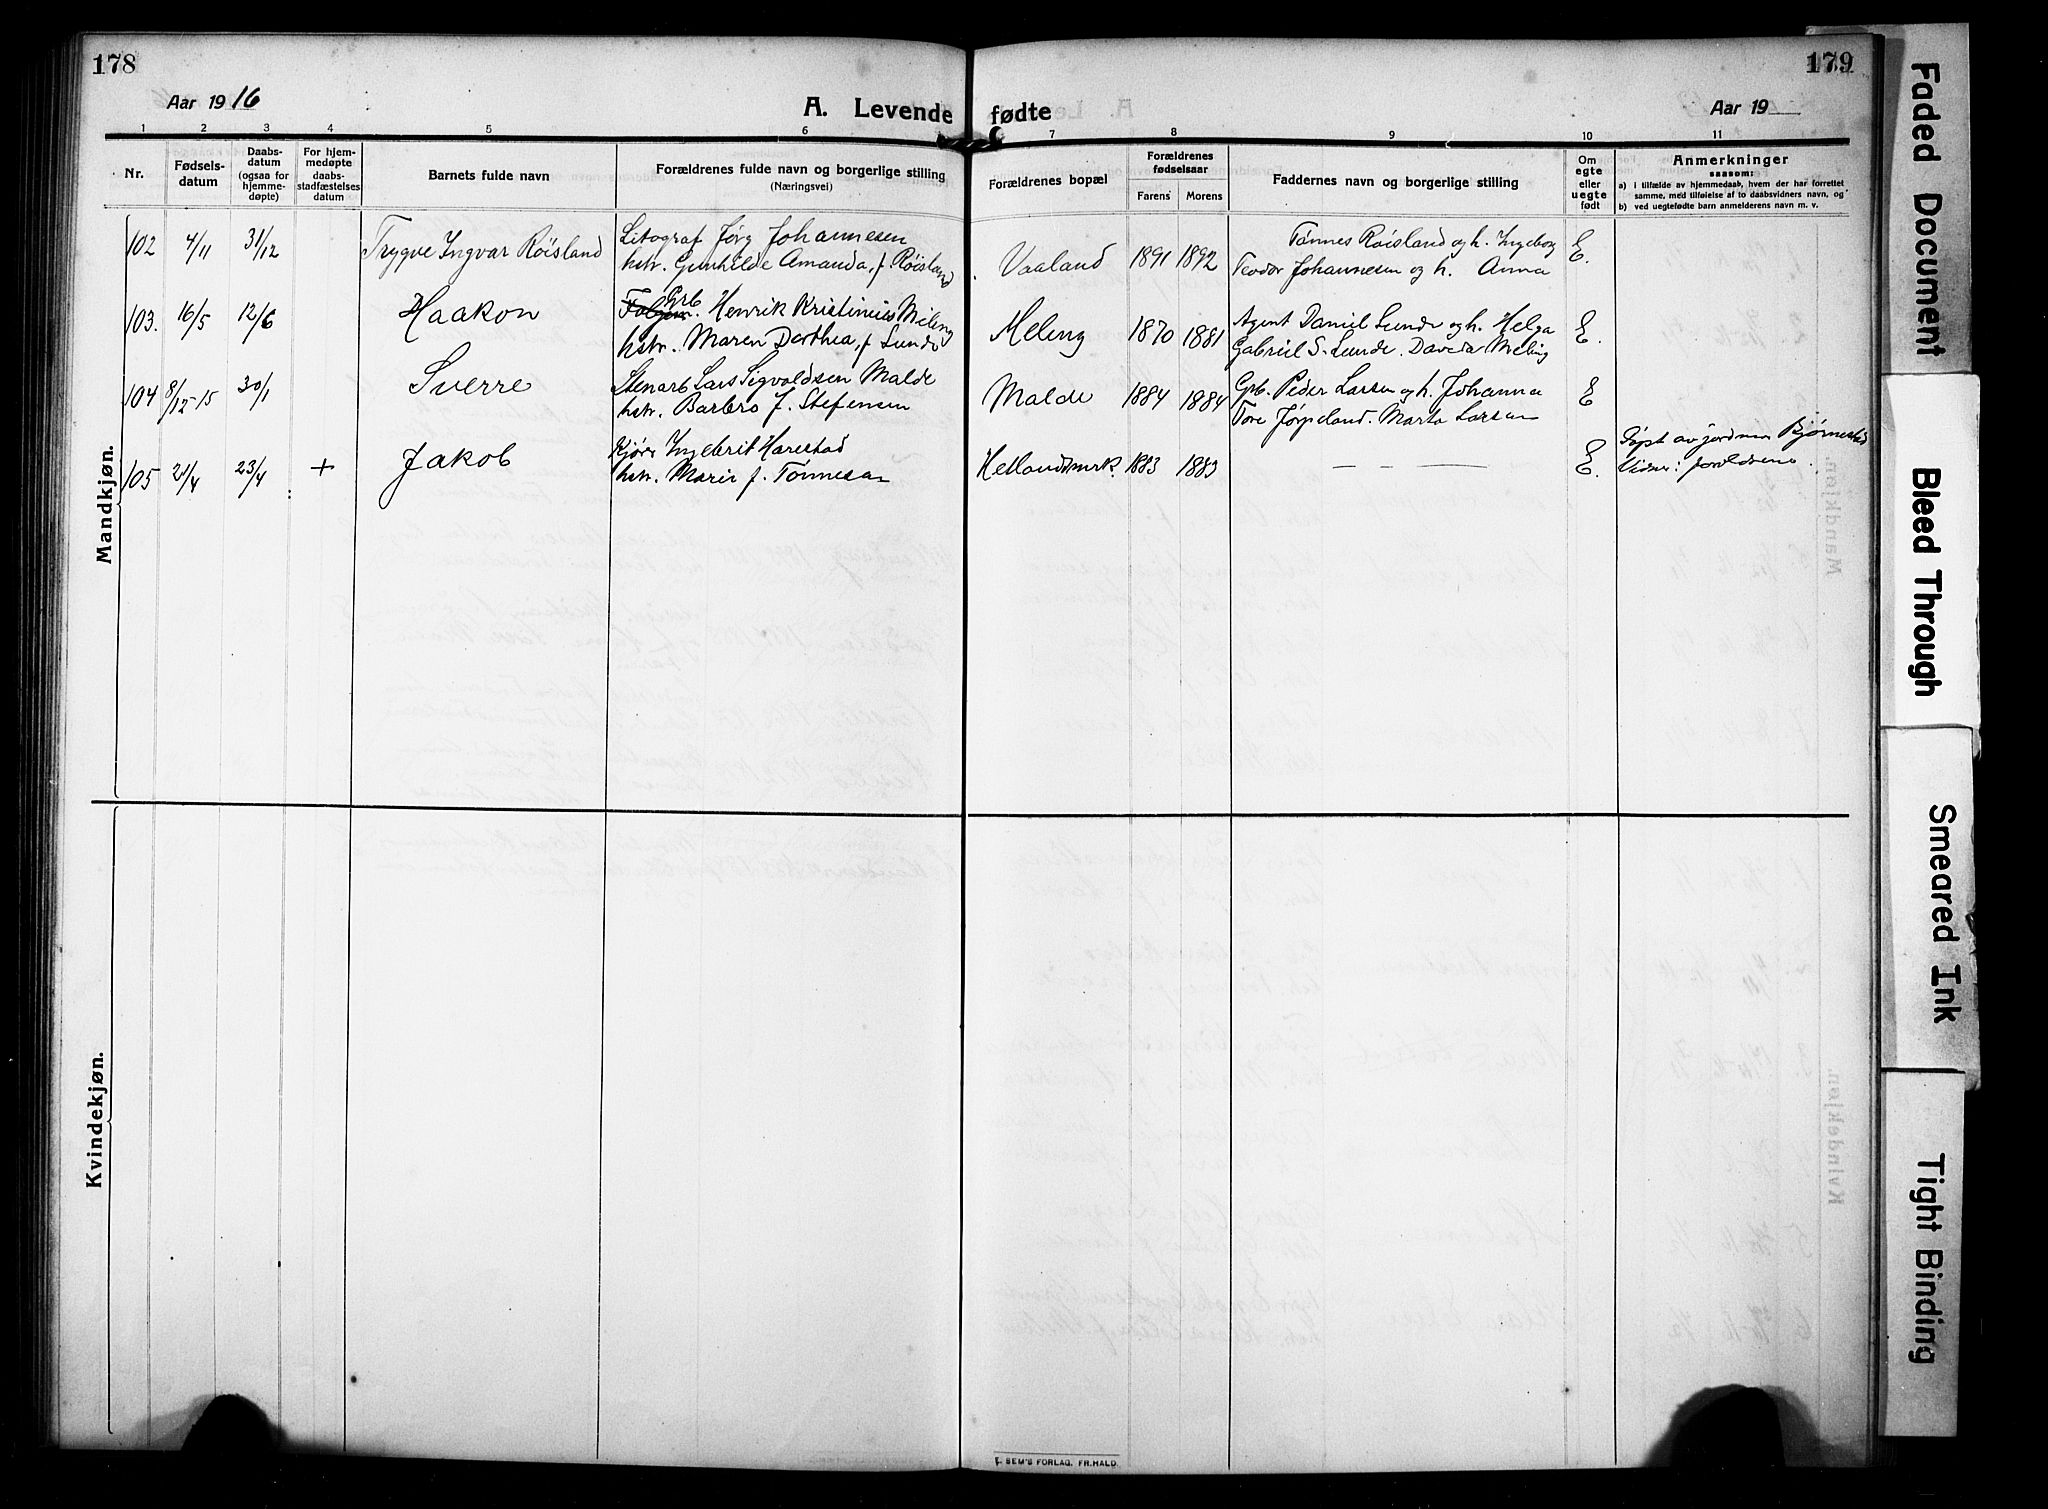 178
179
Aar 1916
A. Levende fødte
Aar 19
1 2 3 4 5 6 7 8 9 10 11
Nr.
Fødsels-
datum
Daabs-
datum
(ogsaa for
hjemme-
døpte)
For hjem-
medøpte
daabs-
stadfæstelses
datum
Barnets fulde navn
Forældrenes fulde navn og borgerlige stilling
(Næringsvei)
Forældrenes bopæl
Forældrenes
fødselsaar
Farens Morens
Faddernes navn og borgerlige stilling
Om
egte
eller
uegte
født
Anmerkninger
saasom:
a) i tilfælde av hjemmedaab, hvem der har forrettet
samme, med tilføielse af to daabsvidners navn, og
b) ved uegtefødte barn anmelderens navn m. v.
Mandkjøn.
102 4/11 31/12 Trygve Ingvar Röisland
Litograf Jörg Johannesen
hstr. Gunhilde Amanda, f. Röisland
Vaaland 1891 1892
Tönnes Röisland og h. Ingeborg
Teodor Johannesen og h. Anna
E.
103. 16/5 12/6 Haakon
Grb
. Henrik Kristinius Meling
hstr. Maren Dorthea, f Lunde
Meling 1870 1881
Agent Daniel Lunde og h. Helga
Gabriel S. Lunde. Davida Meling
E.
104 8/12-15 30/1 Sverre
Stenarb Lars Sigvaldsen Malde
hstr. Barbro f. Stefensen
Malde 1884 1884
Grb. Peder Larsen og h. Johanna
Tore Jørpeland. Marta Larsen
E
105 2/4 23/4 + Jakob
Kjøre Ingebrit Harestad
hstr. Marie f. Tönnesen
Hetlandsmrk. 1883 1883
— — —
E.
Döpt av jordmor Bjørnestad
Vidner: foreldrene.
Kvindekjøn.
E. SEM'S FORLAG, FR.HALD.
Faded Document
Bleed Through
Smeared Ink
Tight Binding